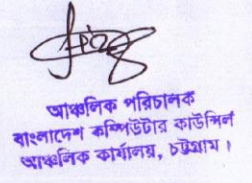 আঞ্চলিক পরিচালক
বাংলাদেশ কম্পিউটার কাউন্সিল
আঞ্চলিক কার্যালয়, চট্টগ্রাম।